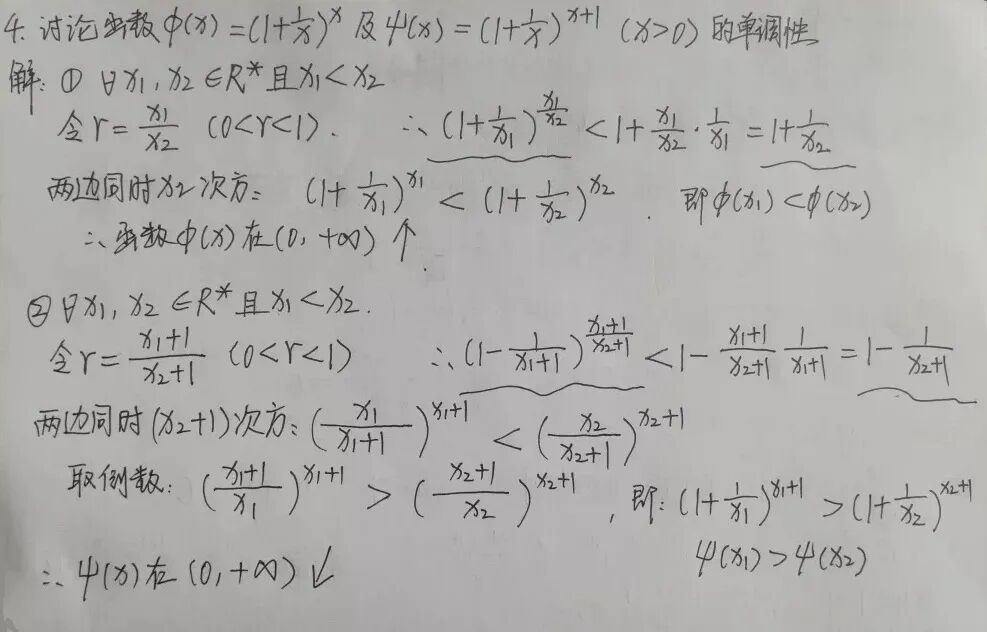 4. 讨论函数 φ(x) = (1+1/x)^x 及 ψ(x) = (1+1/x)^(x+1) (x>0) 的单调性
解: ① ∀x₁, x₂ ∈ R* 且 x₁ < x₂
令 r = x₁/x₂ (0<r<1). ∴ (1+1/x₁)^(x₁/x₂) < 1+x₁/x₂·1/x₁ = 1+1/x₂
两边同时 x₂ 次方: (1+1/x₁)^x₁ < (1+1/x₂)^x₂. 即 φ(x₁) < φ(x₂)
∴ 函数 φ(x) 在 (0, +∞) ↑.
② ∀x₁, x₂ ∈ R* 且 x₁ < x₂.
令 r = (x₁+1)/(x₂+1) (0<r<1) ∴ (1-1/(x₁+1))^((x₁+1)/(x₂+1)) < 1-(x₁+1)/(x₂+1) 1/(x₁+1) = 1-1/(x₂+1)
两边同时 (x₂+1) 次方: (x₁/(x₁+1))^(x₁+1) < (x₂/(x₂+1))^(x₂+1)
取倒数: ((x₁+1)/x₁)^(x₁+1) > ((x₂+1)/x₂)^(x₂+1), 即: (1+1/x₁)^(x₁+1) > (1+1/x₂)^(x₂+1)
ψ(x₁) > ψ(x₂)
∴ ψ(x) 在 (0, +∞) ↓